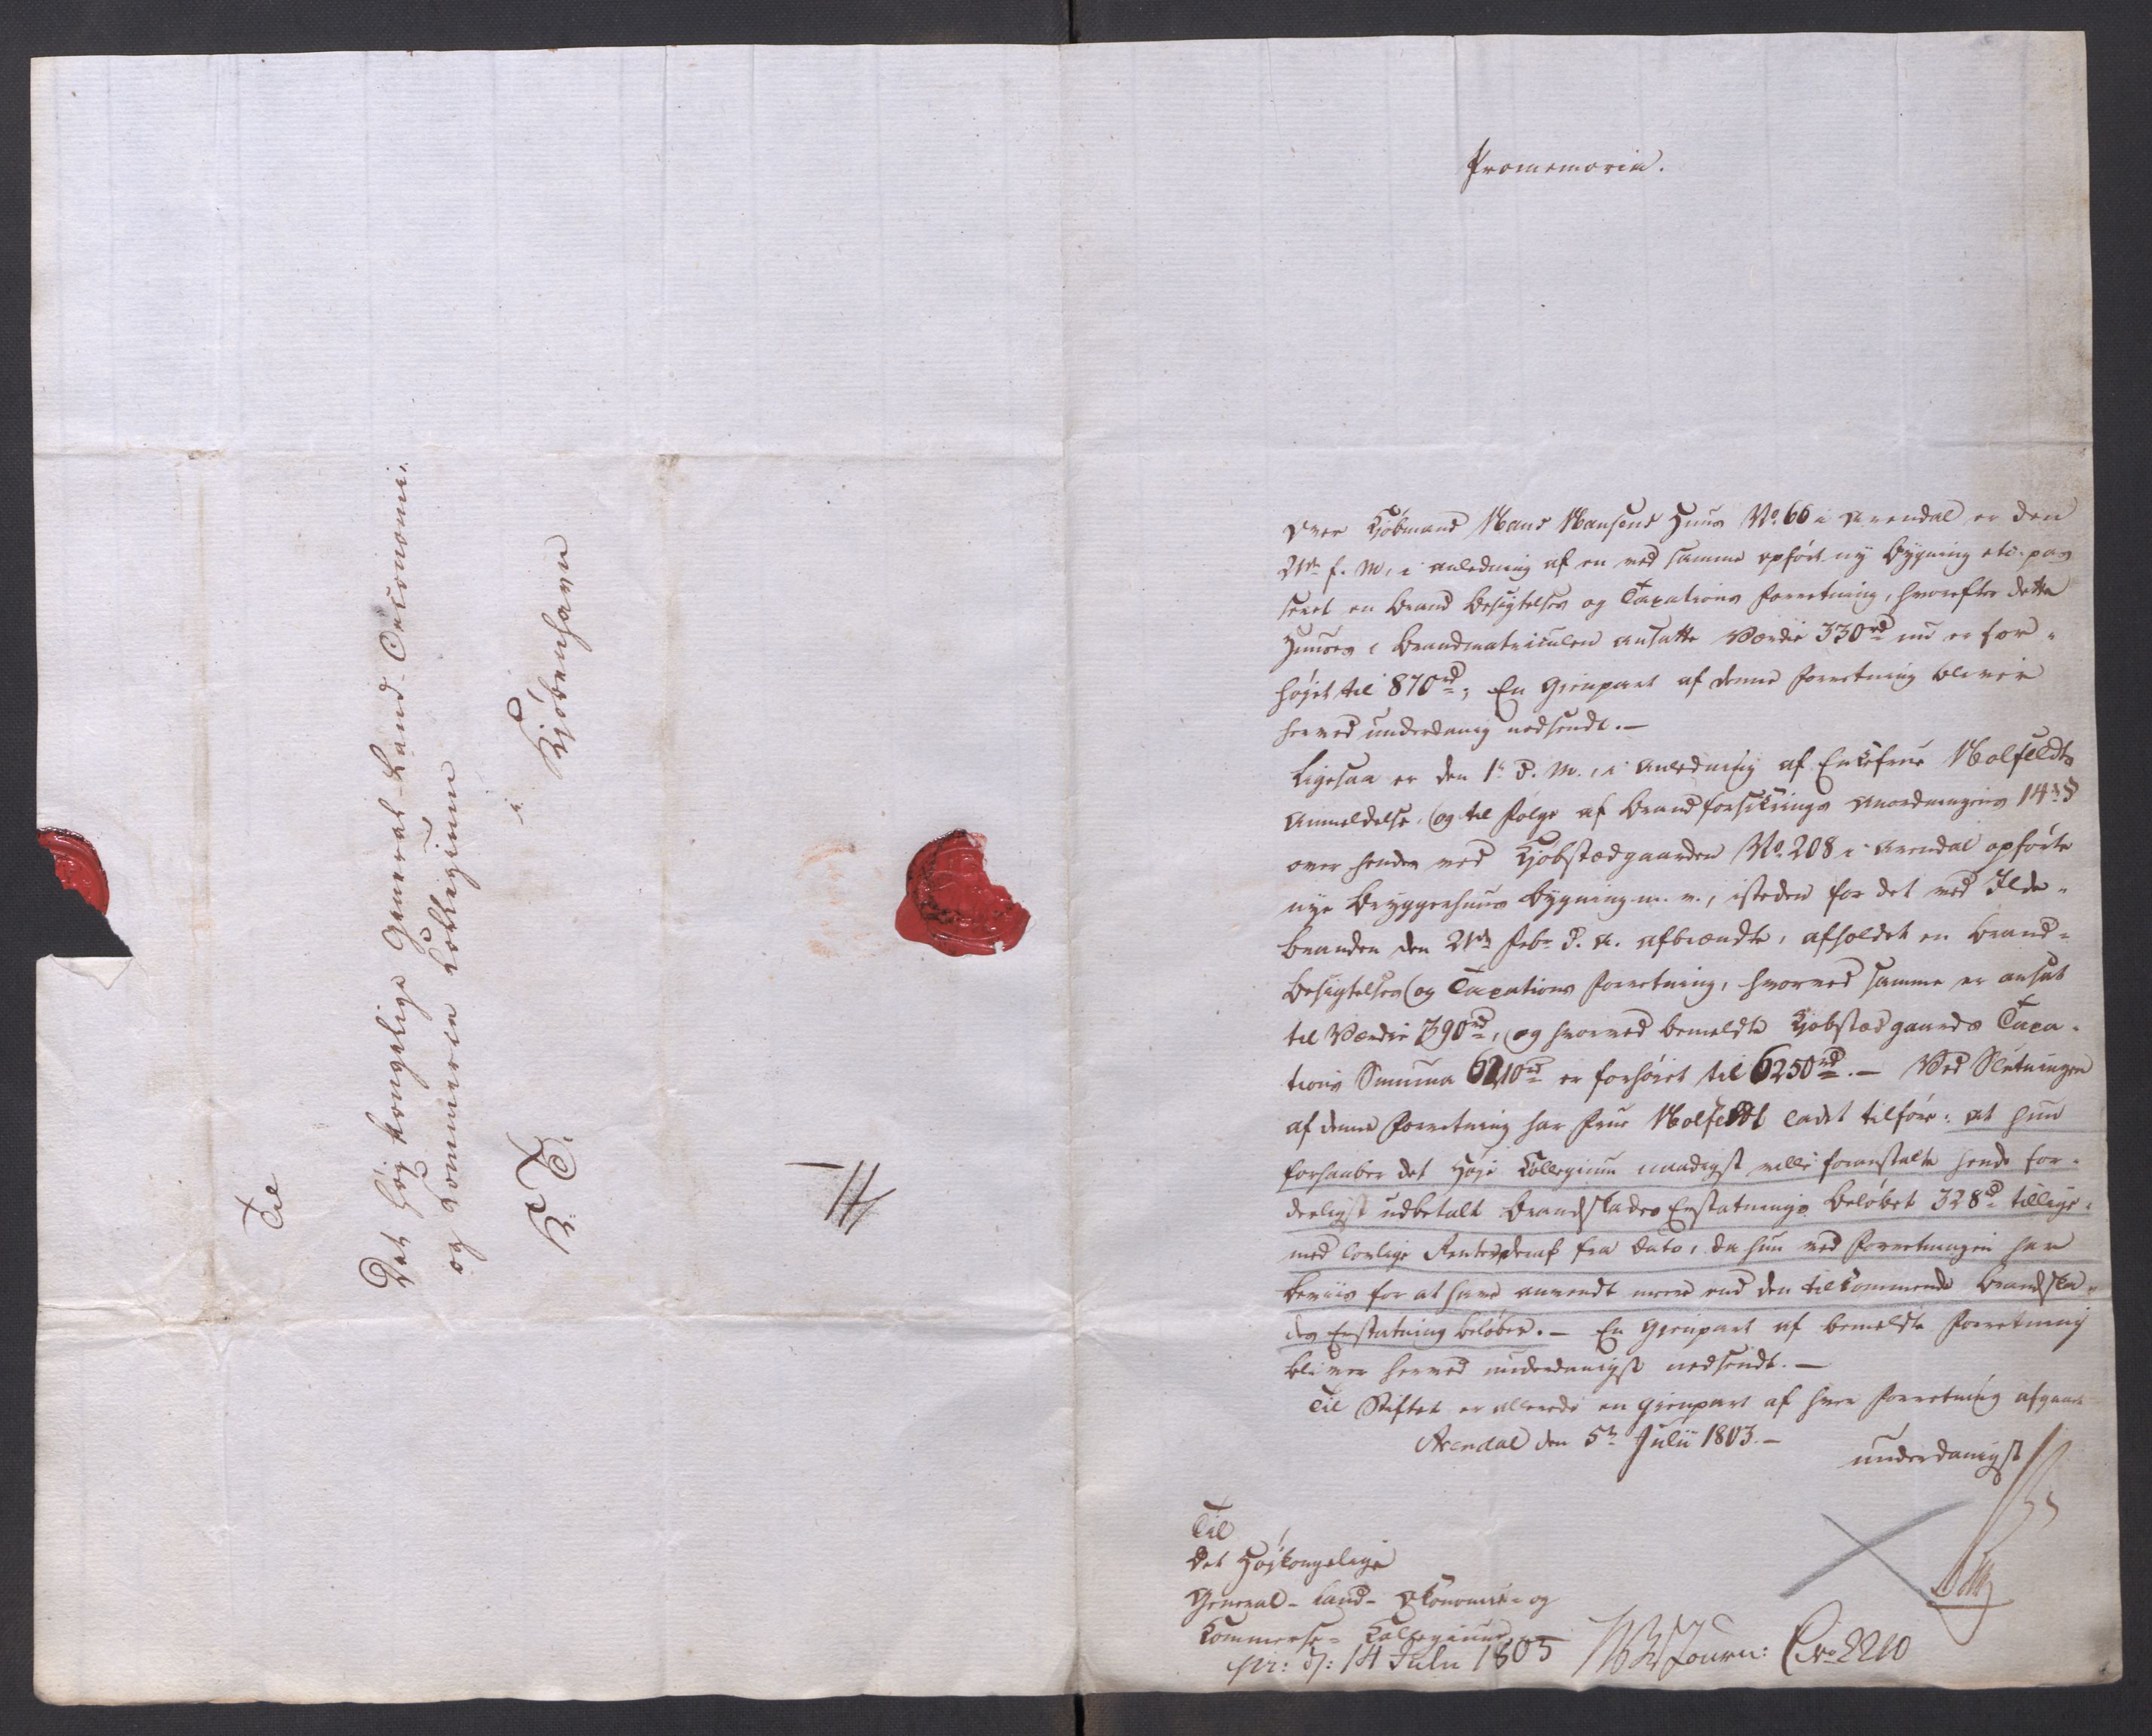 Til
Det høj kongelige General-Land-Oeconomi
og Kommerce Kollegium
i
Kjøbenhavn
K: T.
Promemoria.
Over Kjøbmand Hans Hansens Huus No 66 i Arendal er den
21de f. M. i anledning af en ved samme opført ny Bygning etc. pas
seret en Brand Besigtelses og Taxations Forretning, hvorefter dette
Huuses i Brandmatriculen ansatte Værdie 330 rd nu er for-
højet til 870 rd; En Gienpart af denne Forretning bliver
herved underdanig nedsendt. —
Ligesaa er den 1te d. M., i Anledning af Enkefrue Holfeldts
Anmeldelse, og til følge af Brandforsikrings Anordningens 14de §
over hendes ved Kjøbstædgaarden No 208 i Arendal opførte
nye Bryggerhuus Bygning m. v., isteden for det ved Ilde-
branden den 21de Febr. d. A. afbrændte, afholdet en Brand-
Besigtelses og Taxations Forretning, hvorved samme er ansat
til Værdie 390 rd, og hvorved bemeldte Kjøbstædgaards Taxa-
tions Summa 6210 rd er forhøiet til 6250 rd. — Ved Slutningen
af denne Forretning har Frue Holfeldt ladet tilføre: at hun
forhaaber det Høje Kollegium naadigst ville foranstalte hende for-
derligst udbetalt Brandskades Erstatnings Beløbet 328 rd tillige-
med lovlige Renter deraf fra Dato, da hun ved Forretningen har
beviis for at have anvendt mere end den tilkommende Brandska-
des Erstatning beløber. — En Gienpart af bemeldte Forretning
bliver herved underdanigst nedsendt. —
Til Stiftet er allerede en Gienpart af hver Forretning afgaaet
Arendal den 5te Julii 1803. —
underdanigst
Til
Det Højkongelige
General-Land-Økonomie- og
Kommerse-Kollegium
pr: d: 14 Julii 1803
Journ: No 2210